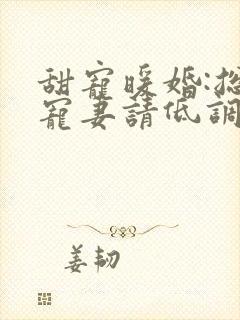 甜寵暖婚:總
寵妻請低調
姜韧